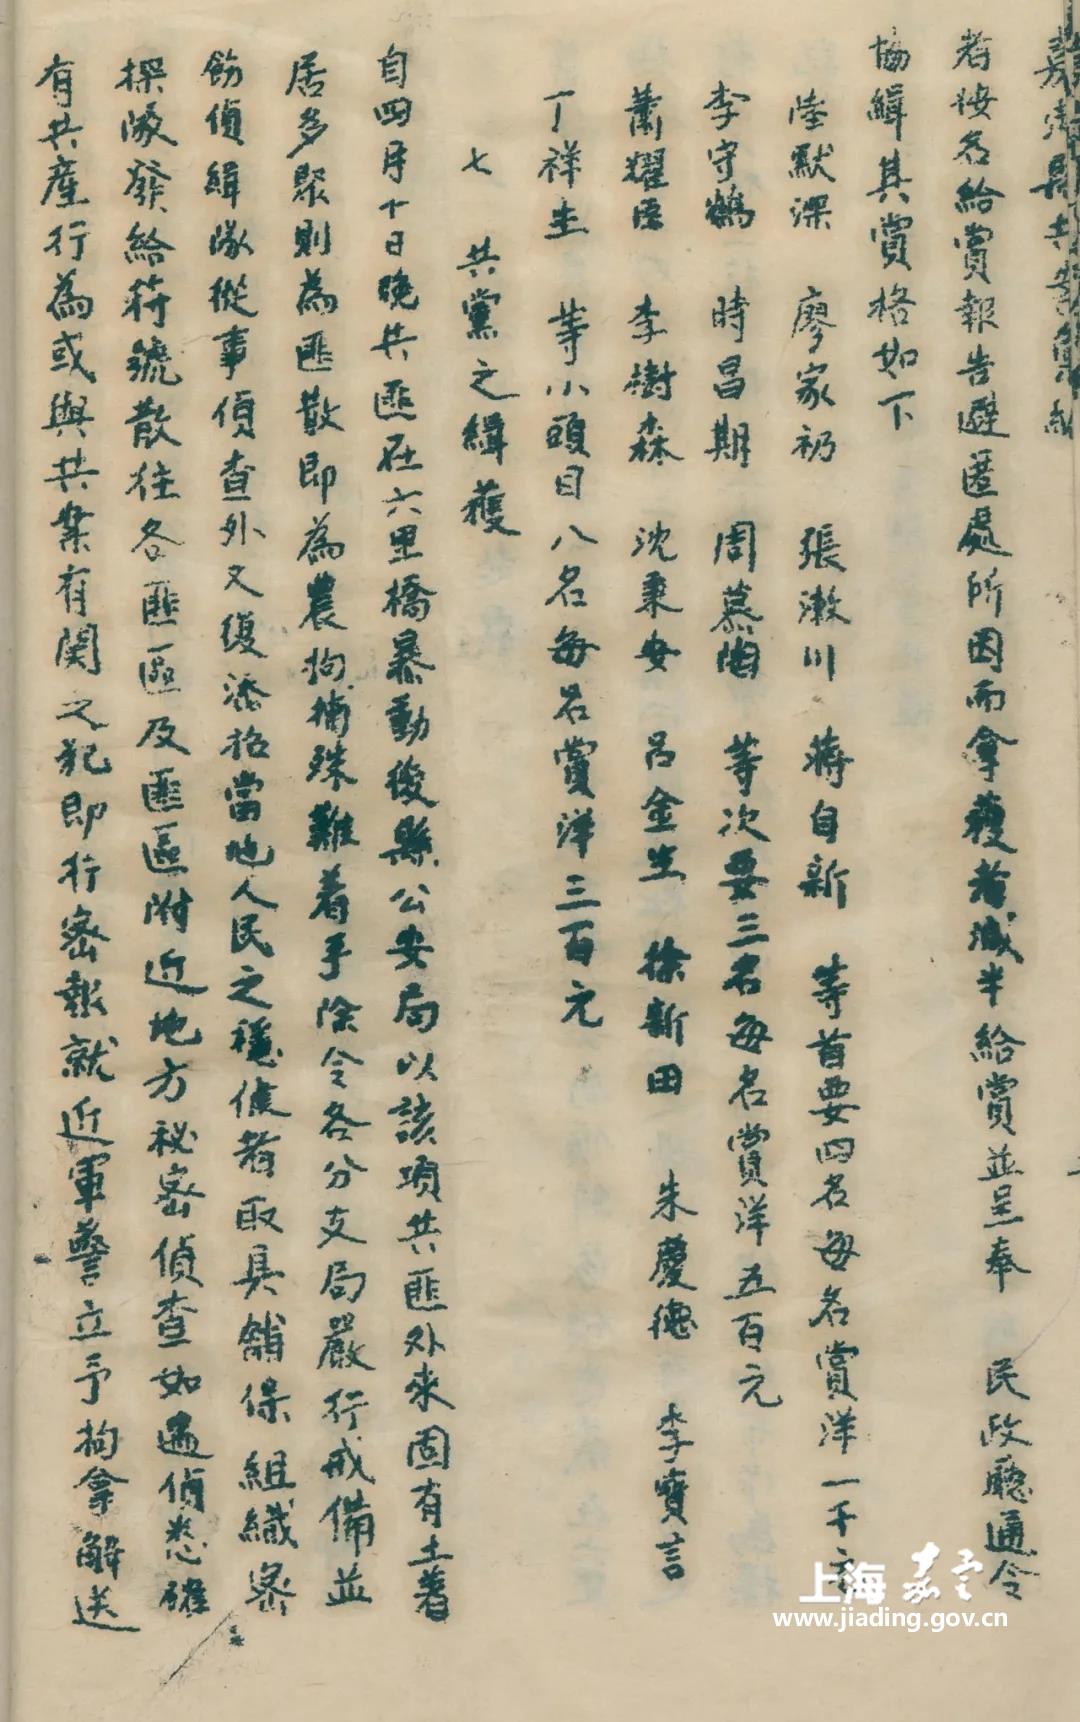 嘉定縣共案彙編
者按名給賞報告避匿處所因而拿獲者減半給賞並呈奉 民政廳通令
協緝其賞格如下
陸默深 廖家礽 張漱川 蔣自新 等首要四名每名賞洋一千元
李守鶴 時昌期 周慕陶 等次要三名每名賞洋五百元
蕭耀臣 李樹森 沈秉安 呂金生 徐新田 朱慶德 李寶言
丁祥生 等小頭目八名每名賞洋三百元
七 共黨之緝獲
自四月十日晚共匪在六里橋暴動後縣公安局以該項共匪外來固有土著
居多聚則為匪散即為農拘捕殊難着手除令各分支局嚴行戒備並
飭偵緝隊從事偵查外又復添招當地人民之穩慎者取具舖保組織密
探隊發給符號散往各匪區及匪區附近地方祕密偵查如遇偵悉確
有共產行為或與共案有関之犯即行密報就近軍警立予拘拿解送
上海嘉定
www.jiading.gov.cn